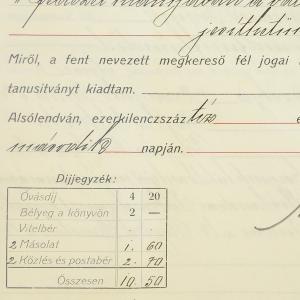 Miről, a fent nevezett megkereső fél jogai
tanusitványt kiadtam.
Alsólendván, ezerkilenczszáz tiz
második napján.
Dijjegyzék:
Óvásdij 4 20
Bélyeg a könyvön 2 —
Vitelbér . .
2 Másolat 1. 60
2 Közlés és postabér 2. 70
Összesen 10. 50